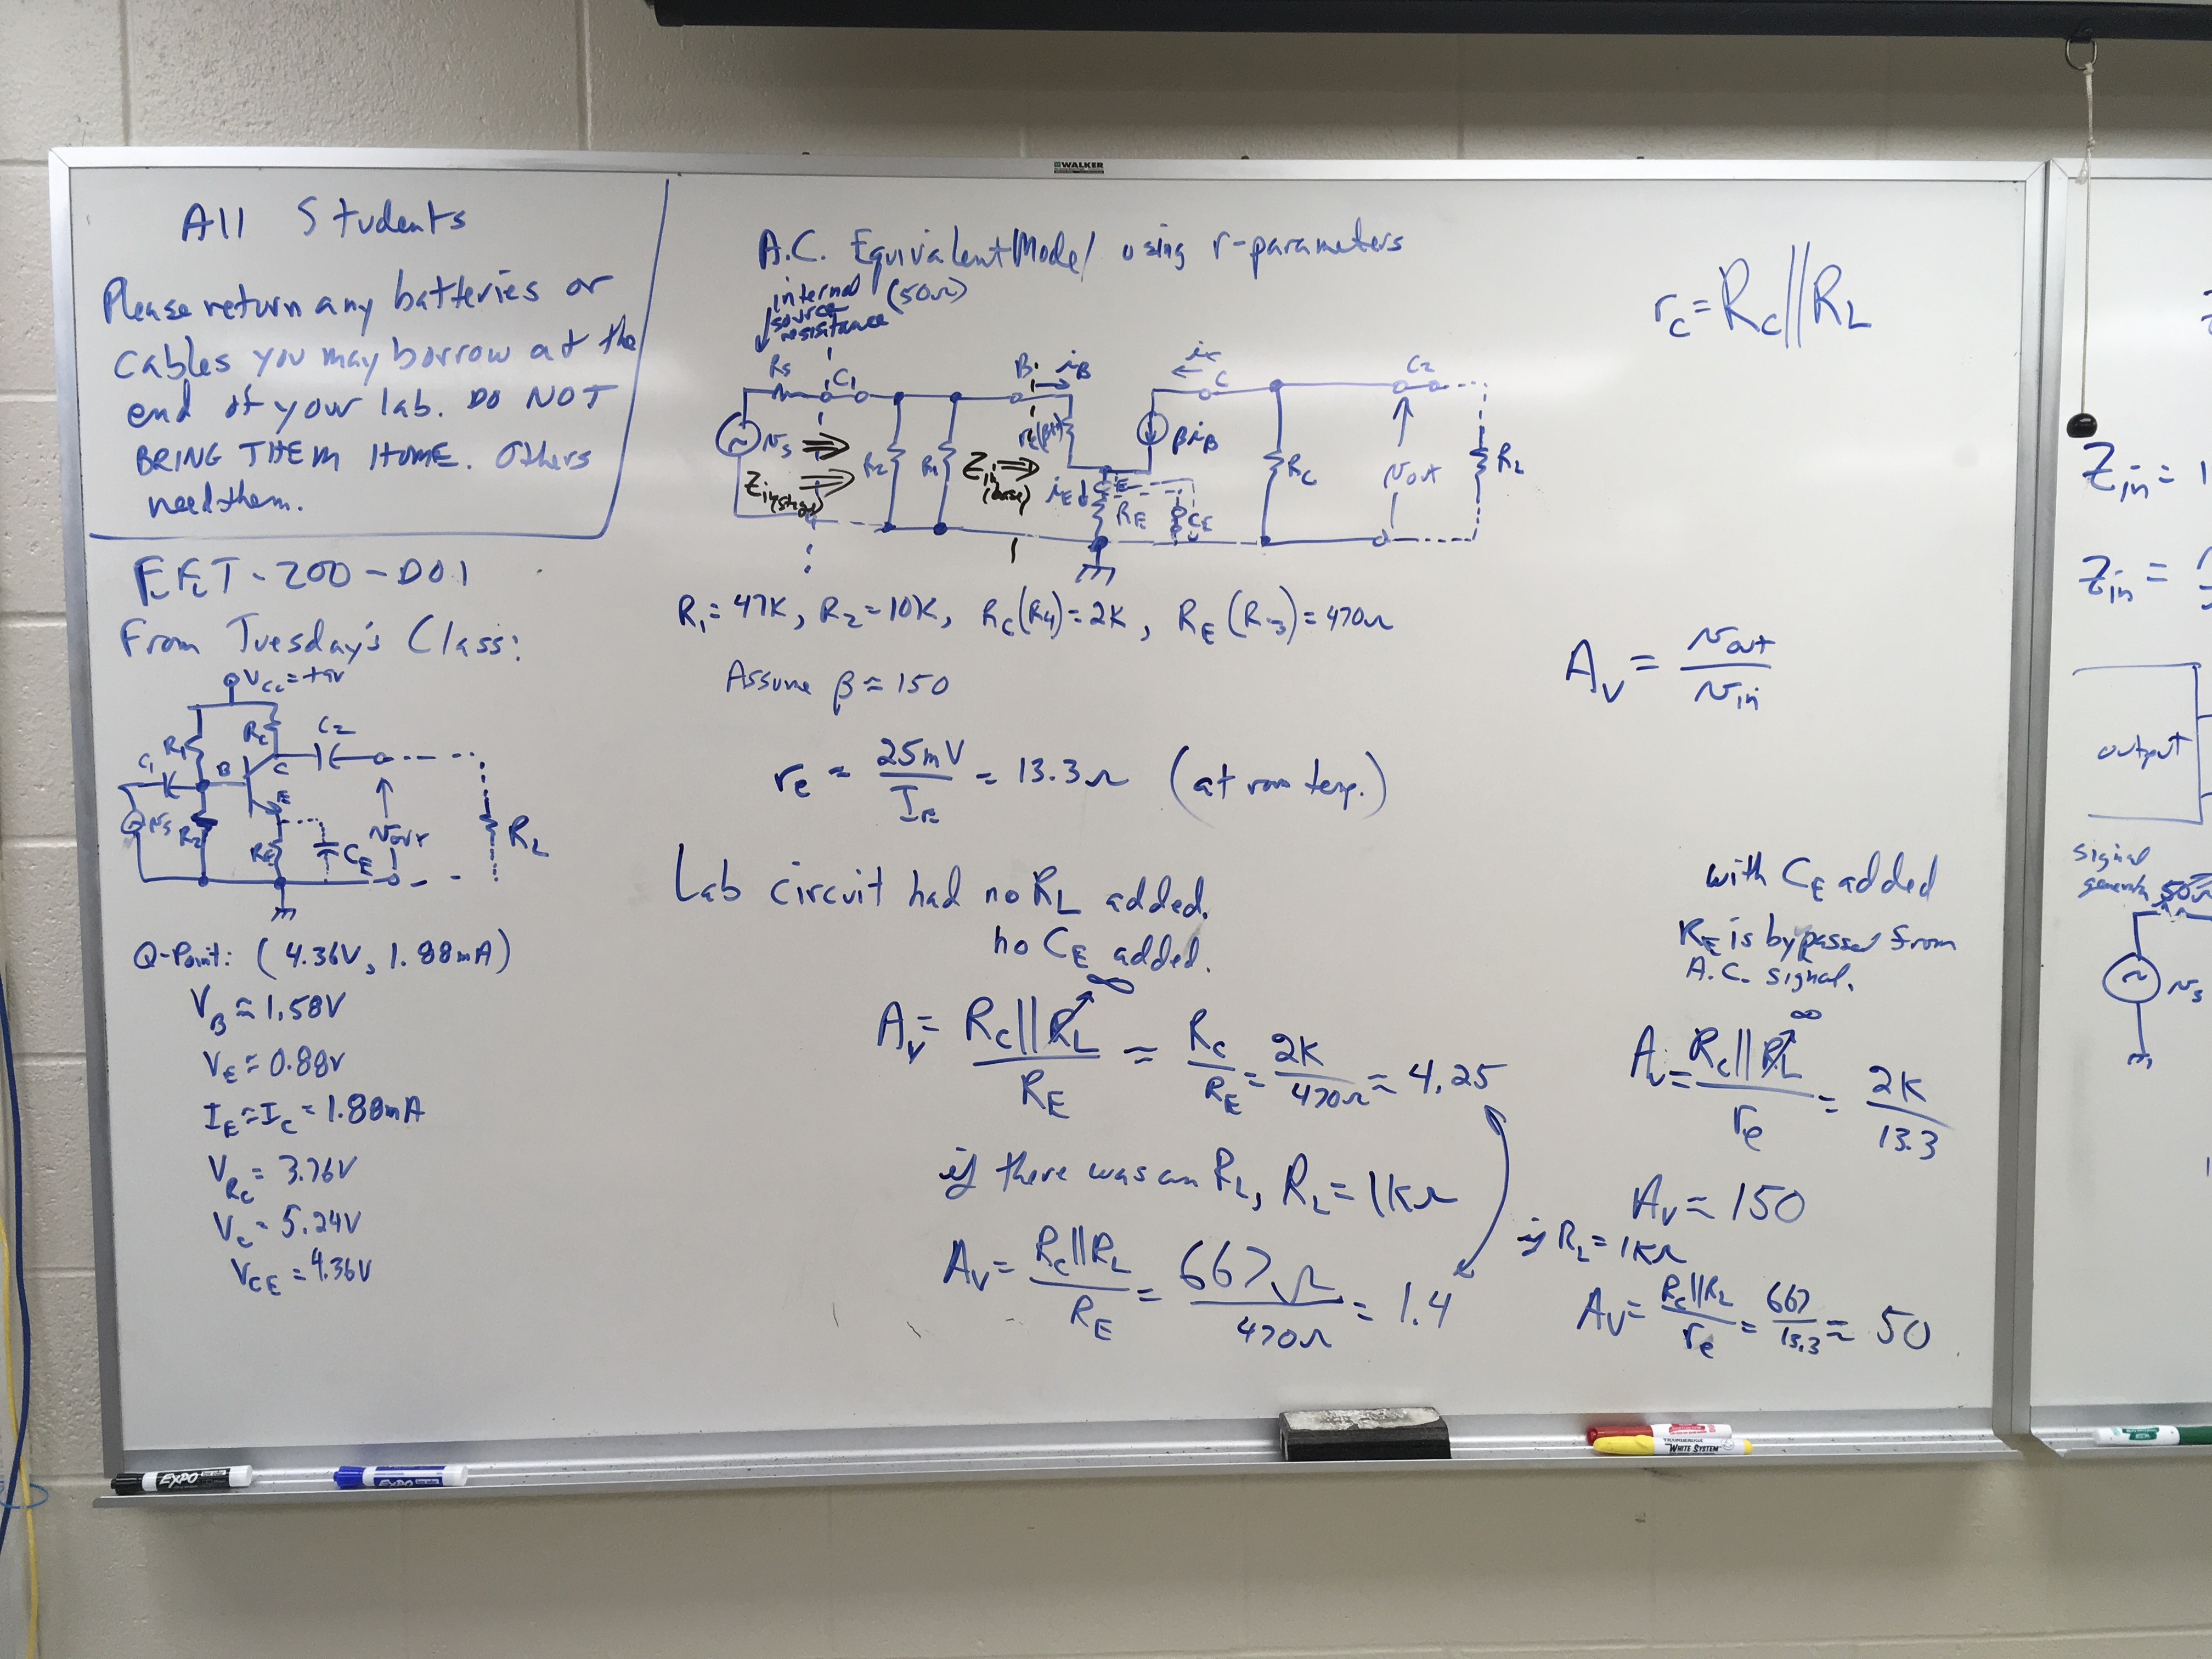 WALKER
All Students
Please return any batteries or
cables you may borrow at the
end of your lab. DO NOT
BRING THEM HOME. Others
need them.
EET-200-D01
From Tuesday's Class:
Vcc=+9V
R1
RC
C2
C1
B
C
E
vs
R2
RE
CE
vout
RL
Q-Point: (4.36V, 1.88mA)
VB ≈ 1.58V
VE ≈ 0.88V
IE ≈ IC = 1.88mA
VRC = 3.76V
VC = 5.24V
VCE = 4.36V
A.C. Equivalent Model using r-parameters
internal (50Ω)
source
resistance
Rs
C1
B
iB
ic
C
C2
vs
R2
R1
re(β+1)
βiB
RC
vout
RL
Zin(stage)
Zin(base)
iE
E
RE
CE
R1=47K, R2=10K, RC(R4)=2K, RE(R3)=470Ω
Assume β≈150
re ≈ 25mV/IE = 13.3Ω (at room temp.)
Lab circuit had no RL added.
no CE added.
AV = RC||RL/RE = RC/RE = 2K/470Ω ≈ 4.25
∞
if there was an RL, RL = 1KΩ
AV = RC||RL/RE = 667Ω/470Ω = 1.4
rc = RC||RL
AV = vout/vin
with CE added
RE is bypassed from
A.C. signal.
∞
AV = RC||RL/re = 2K/13.3
AV ≈ 150
if RL = 1KΩ
AV = RC||RL/re = 667/13.3 ≈ 50
Zin = 1
Zin =
output
signal
generator 50Ω
vs
EXPO
EXPO
WHITE SYSTEM